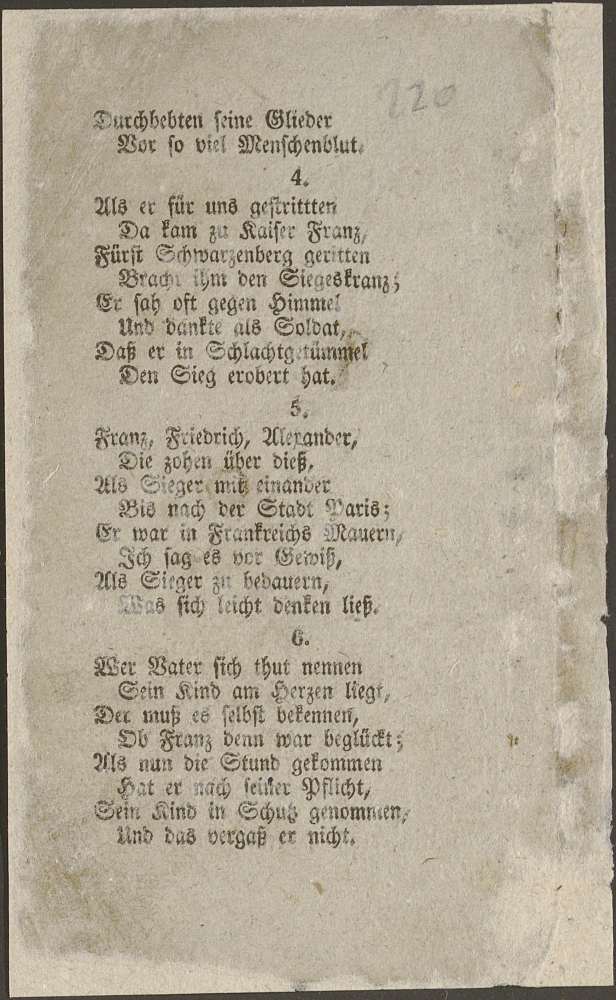 220
Durchbebten seine Glieder
Vor so viel Menschenblut.
4.
Als er für uns gestrittten
Da kam zu Kaiser Franz,
Fürst Schwarzenberg geritten
Bracht ihm den Siegeskranz;
Er sah oft gegen Himmel
Und dankte als Soldat,
Daß er in Schlachtgetümmel
Den Sieg erobert hat.
5.
Franz, Friedrich, Alexander,
Die zohen über dieß,
Als Sieger mit einander
Bis nach der Stadt Paris;
Er war in Frankreichs Mauern,
Ich sag es vor Gewiß,
Als Sieger zu bedauern,
Was sich leicht denken ließ.
6.
Wer Vater sich thut nennen
Sein Kind am Herzen liegt,
Der muß es selbst bekennen,
Ob Franz denn war beglückt;
Als nun die Stund gekommen
Hat er nach seiner Pflicht,
Sein Kind in Schutz genommen,
Und das vergaß er nicht.